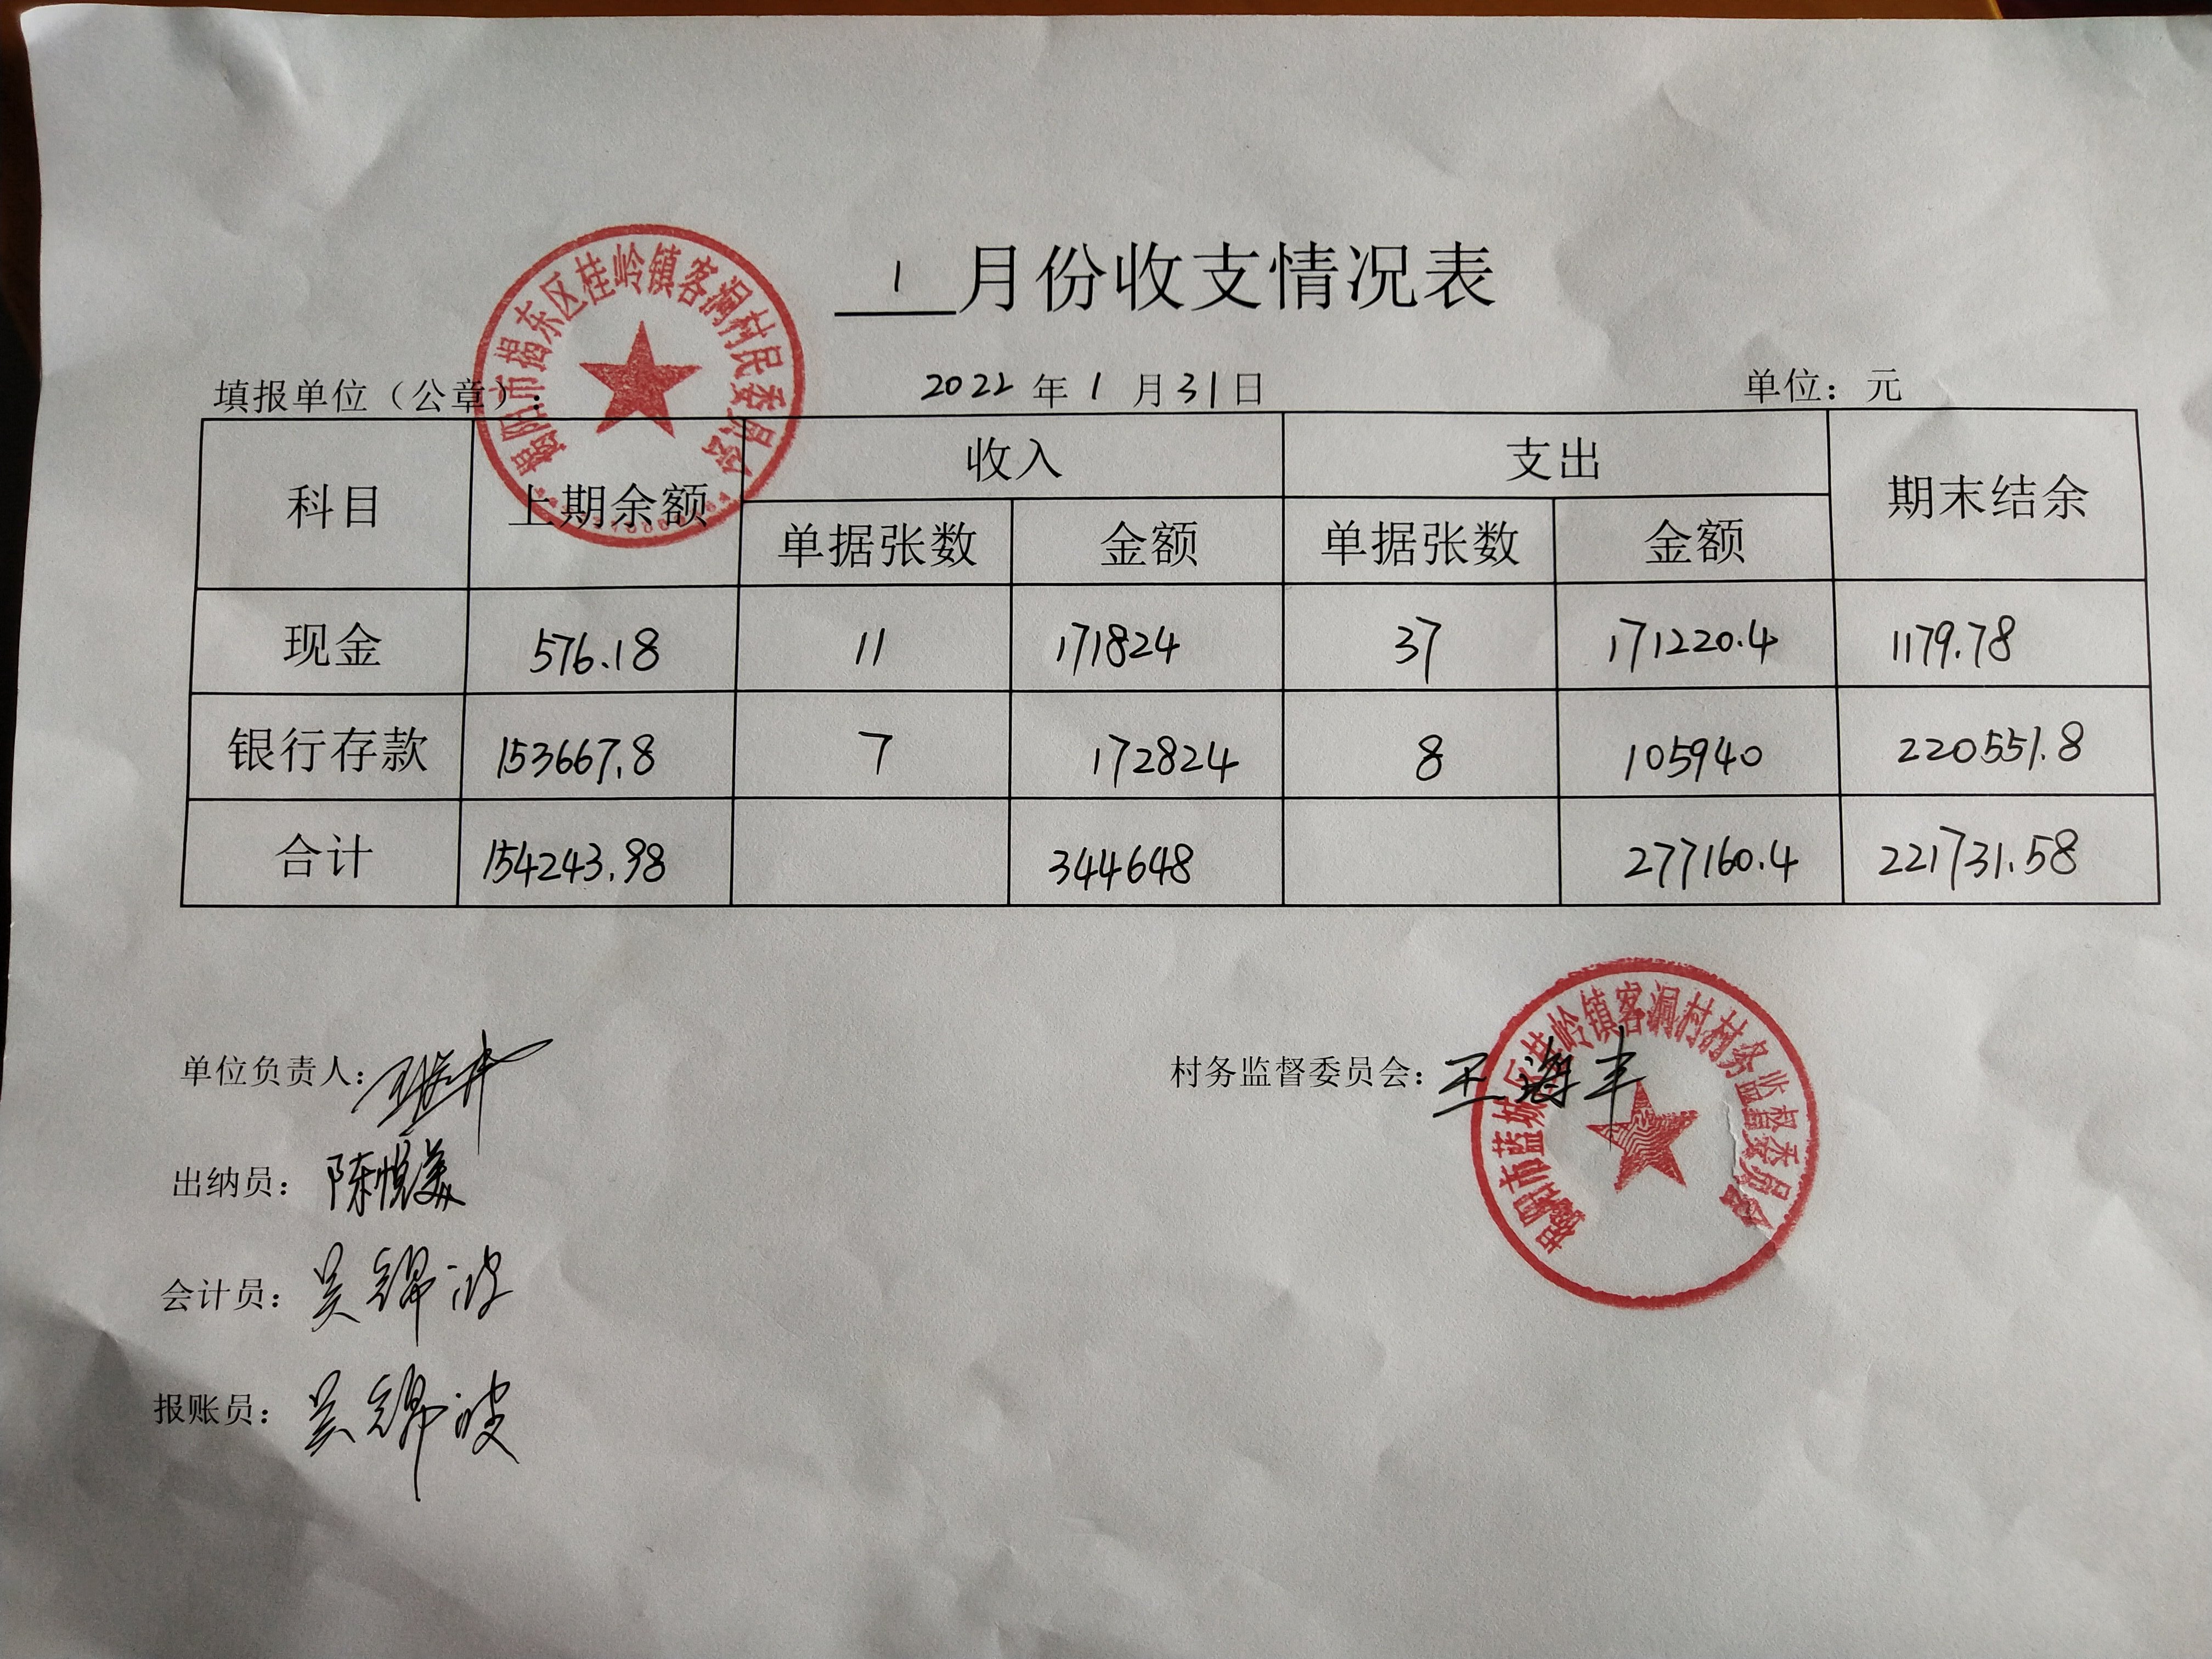 1月份收支情况表
揭阳市揭东区桂岭镇客洞村民委员会
填报单位（公章）： 2022年1月31日 单位：元
科目 上期余额 收入 支出 期末结余
单据张数 金额 单据张数 金额
现金 576.18 11 171824 37 171220.4 1179.78
银行存款 153667.8 7 172824 8 105940 220551.8
合计 154243.98 344648 277160.4 221731.58
单位负责人： 村务监督委员会：王海丰
揭阳市蓝城区桂岭镇客洞村村务监督委员会
出纳员：陈悦美
会计员：吴锦波
报账员：吴锦波